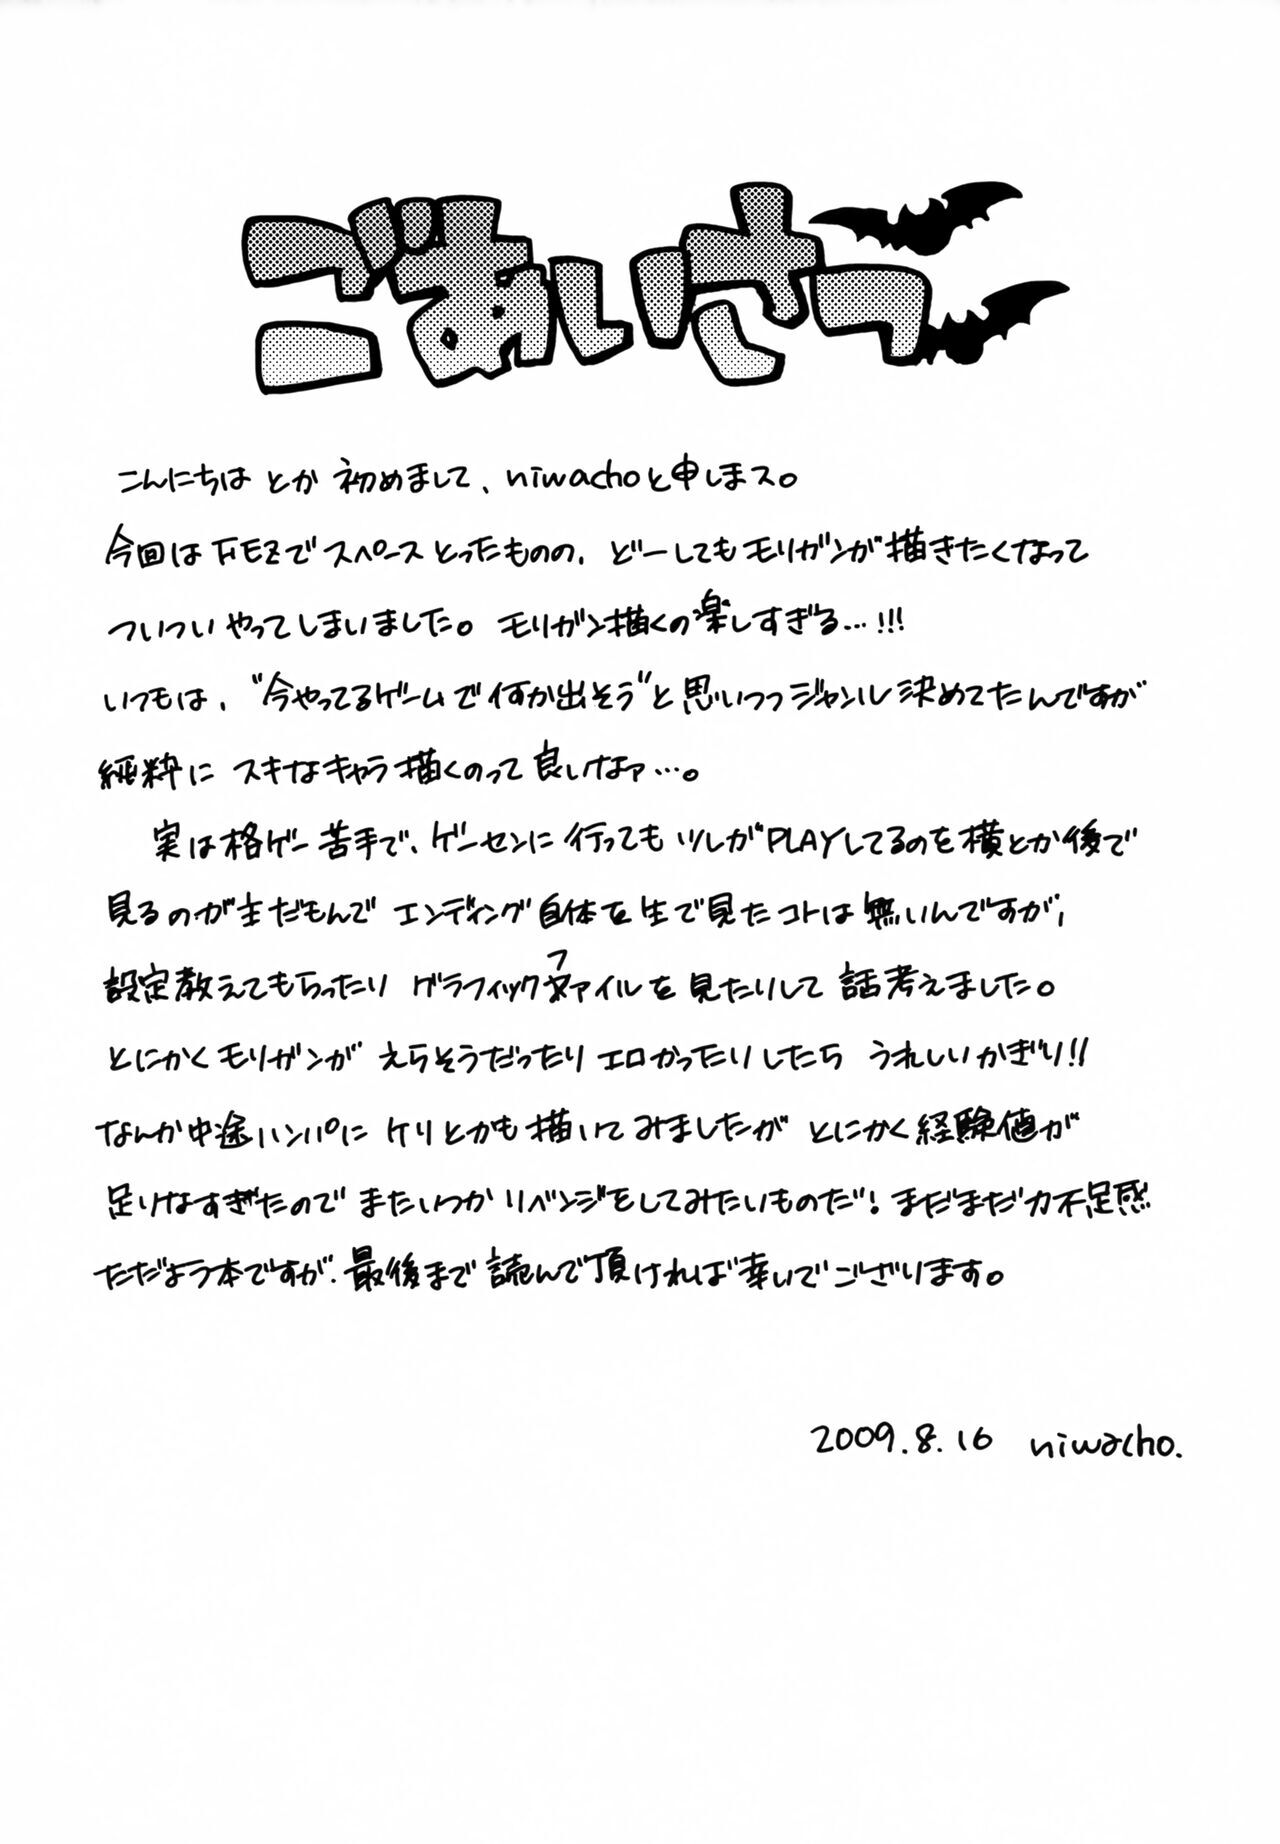 ごあいさつ
こんにちは とか 初めまして、niwachoと申しまス。
今回はFEZでスペースとったものの、どーしてもモリガンが描きたくなって
ついついやってしまいました。モリガン描くの楽しすぎる…!!!
いつもは、"今やってるゲームで何か出そう"と思いつつジャンル決めてたんですが
純粋に スキなキャラ描くのって良いなァ…。
実は格ゲー苦手で、ゲーセンに行ってもツレがPLAYしてるのを横とか後で
見るのが主だもんで エンディング自体を生で見たコトは無いんですが、
設定教えてもらったり グラフィックファイルを見たりして 話考えました。
とにかくモリガンが えらそうだったり エロかったりしたら うれしいかぎり!!
なんか中途ハンパに ケリとかも描いてみましたが とにかく経験値が
足りなすぎたので またいつか リベンジをしてみたいものだ! まだまだ力不足感
ただよう本ですが、最後まで 読んで頂ければ幸いでございます。
2009.8.16 niwacho.